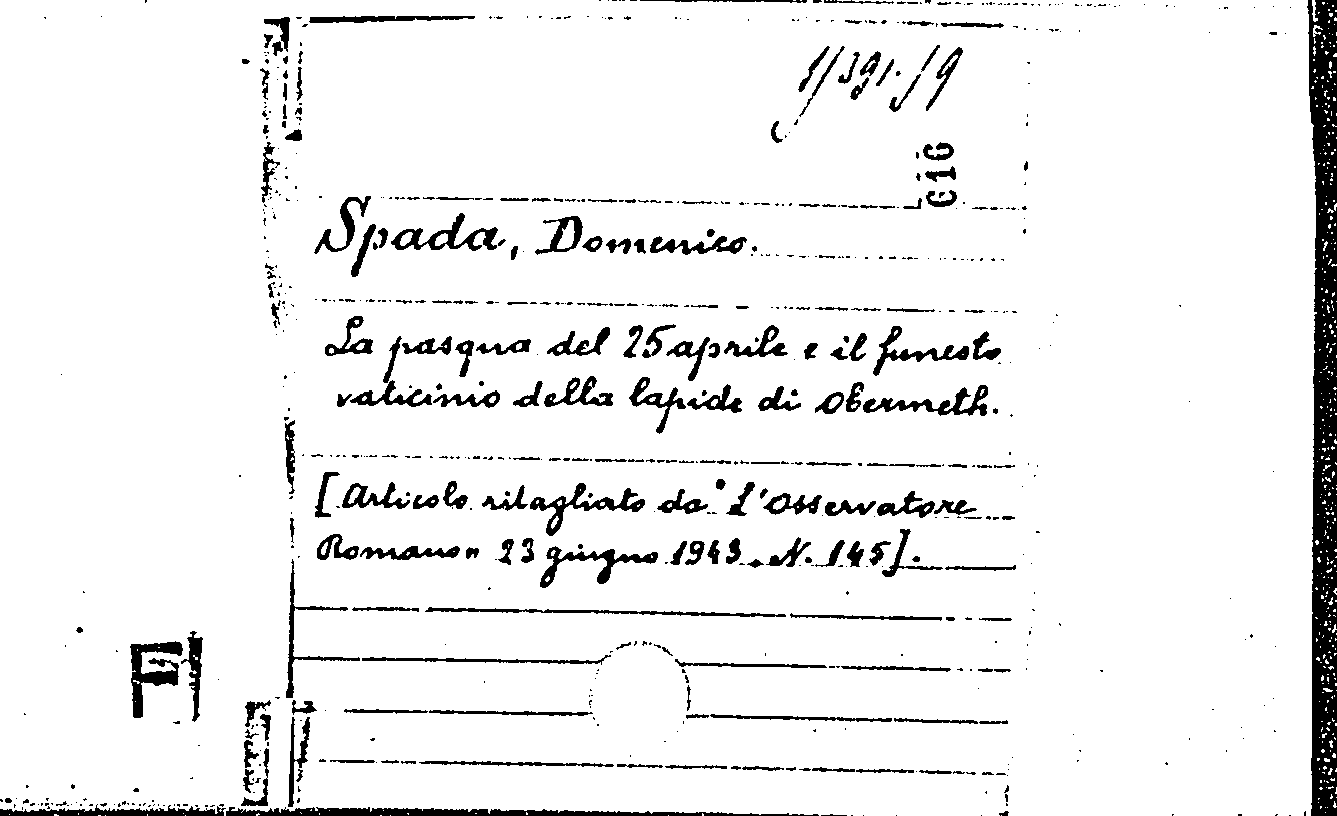 1/391./9
G16
Spada, Domenico.
La pasqua del 25 aprile e il funesto
vaticinio della lapide di Obermeth.
[Articolo ritagliato da "L'Osservatore
Romano" 23 giugno 1943. N. 145].